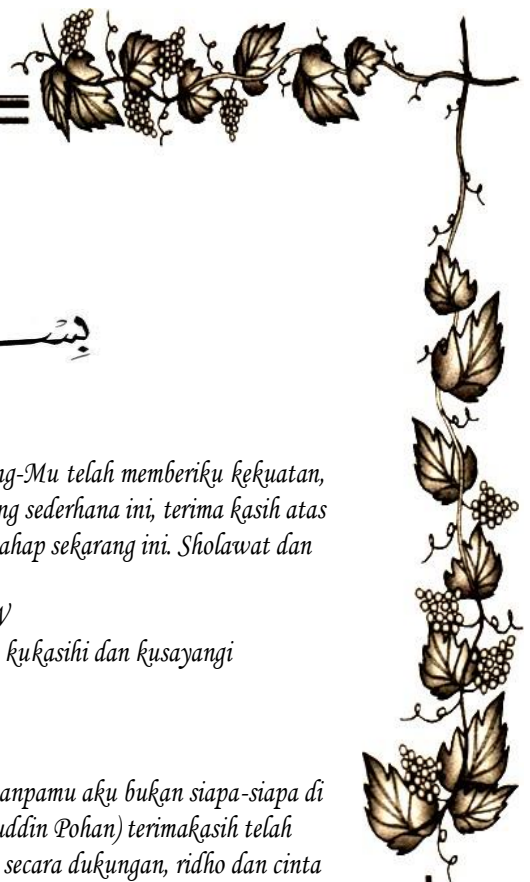 بِسْ
ng-Mu telah memberiku kekuatan,
ng sederhana ini, terima kasih atas
ahap sekarang ini. Sholawat dan
W
kukasihi dan kusayangi
anpamu aku bukan siapa-siapa di
uddin Pohan) terimakasih telah
secara dukungan, ridho dan cinta